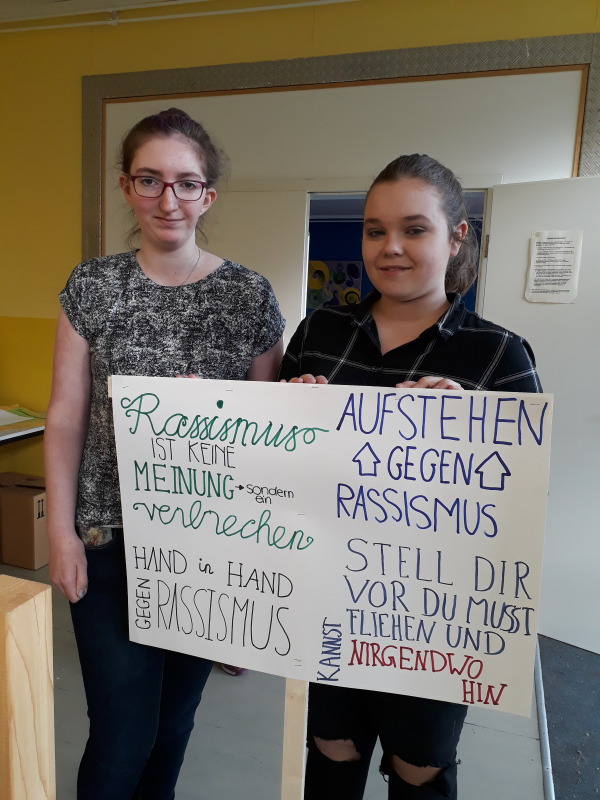 Rassismus
IST KEINE
MEINUNG → sondern
ein
verbrechen
HAND in HAND
GEGEN RASSISMUS
AUFSTEHEN
GEGEN
RASSISMUS
STELL DIR
VOR DU MUSST
FLIEHEN UND
KANNST NIRGENDWO
HIN